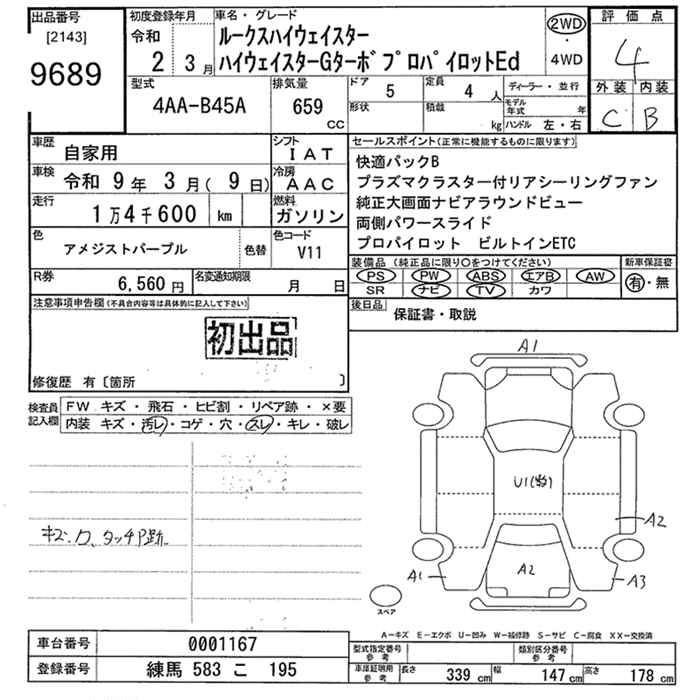 出品番号
[2143]
9689
初度登録年月
令和
2 3月
車名・グレード
ルークスハイウェイスター
ハイウェイスターGターボプロパイロットEd
2WD
・
4WD
評価点
4
外装 内装
C B
型式
4AA-B45A
排気量
659
cc
ドア
5
定員
4 人
形状
積載
kg
ディーラー・並行
モデル年式 年
ハンドル 左・右
車歴
自家用
シフト
IAT
車検
令和 9年 3月(9日)
冷房
AAC
走行
1万4千600 km
燃料
ガソリン
色
アメジストパープル
色替
色コード
V11
R券
6,560円
名変通知期限
月 日
セールスポイント(正常に機能するものに限ります)
快適パックB
プラズマクラスター付リアシーリングファン
純正大画面ナビアラウンドビュー
両側パワースライド
プロパイロット ビルトインETC
装備品(純正品に限り○をつけてください)
PS PW ABS エアB AW
SR ナビ TV カワ
新車保証書
有・無
後日品
保証書・取説
注意事項申告欄(不具合内容等は具体的に記入して下さい)
初出品
修復歴 有〔箇所 〕
検査員記入欄
FW キズ・飛石・ヒビ割・リペア跡・×要
内装 キズ・汚レ・コゲ・穴・スレ・キレ・破レ
キズ.ワ、タッチP跡
A1
U1(物)
A2
A1
A2
A3
スペア
A-キズ E-エクボ U-凹み W-補修跡 S-サビ C-腐食 XX-交換済
車台番号
0001167
登録番号
練馬 583 こ 195
型式指定番号
参考
類別区分番号
参考
車庫証明用
参考
長さ 339 cm 幅 147 cm 高さ 178 cm